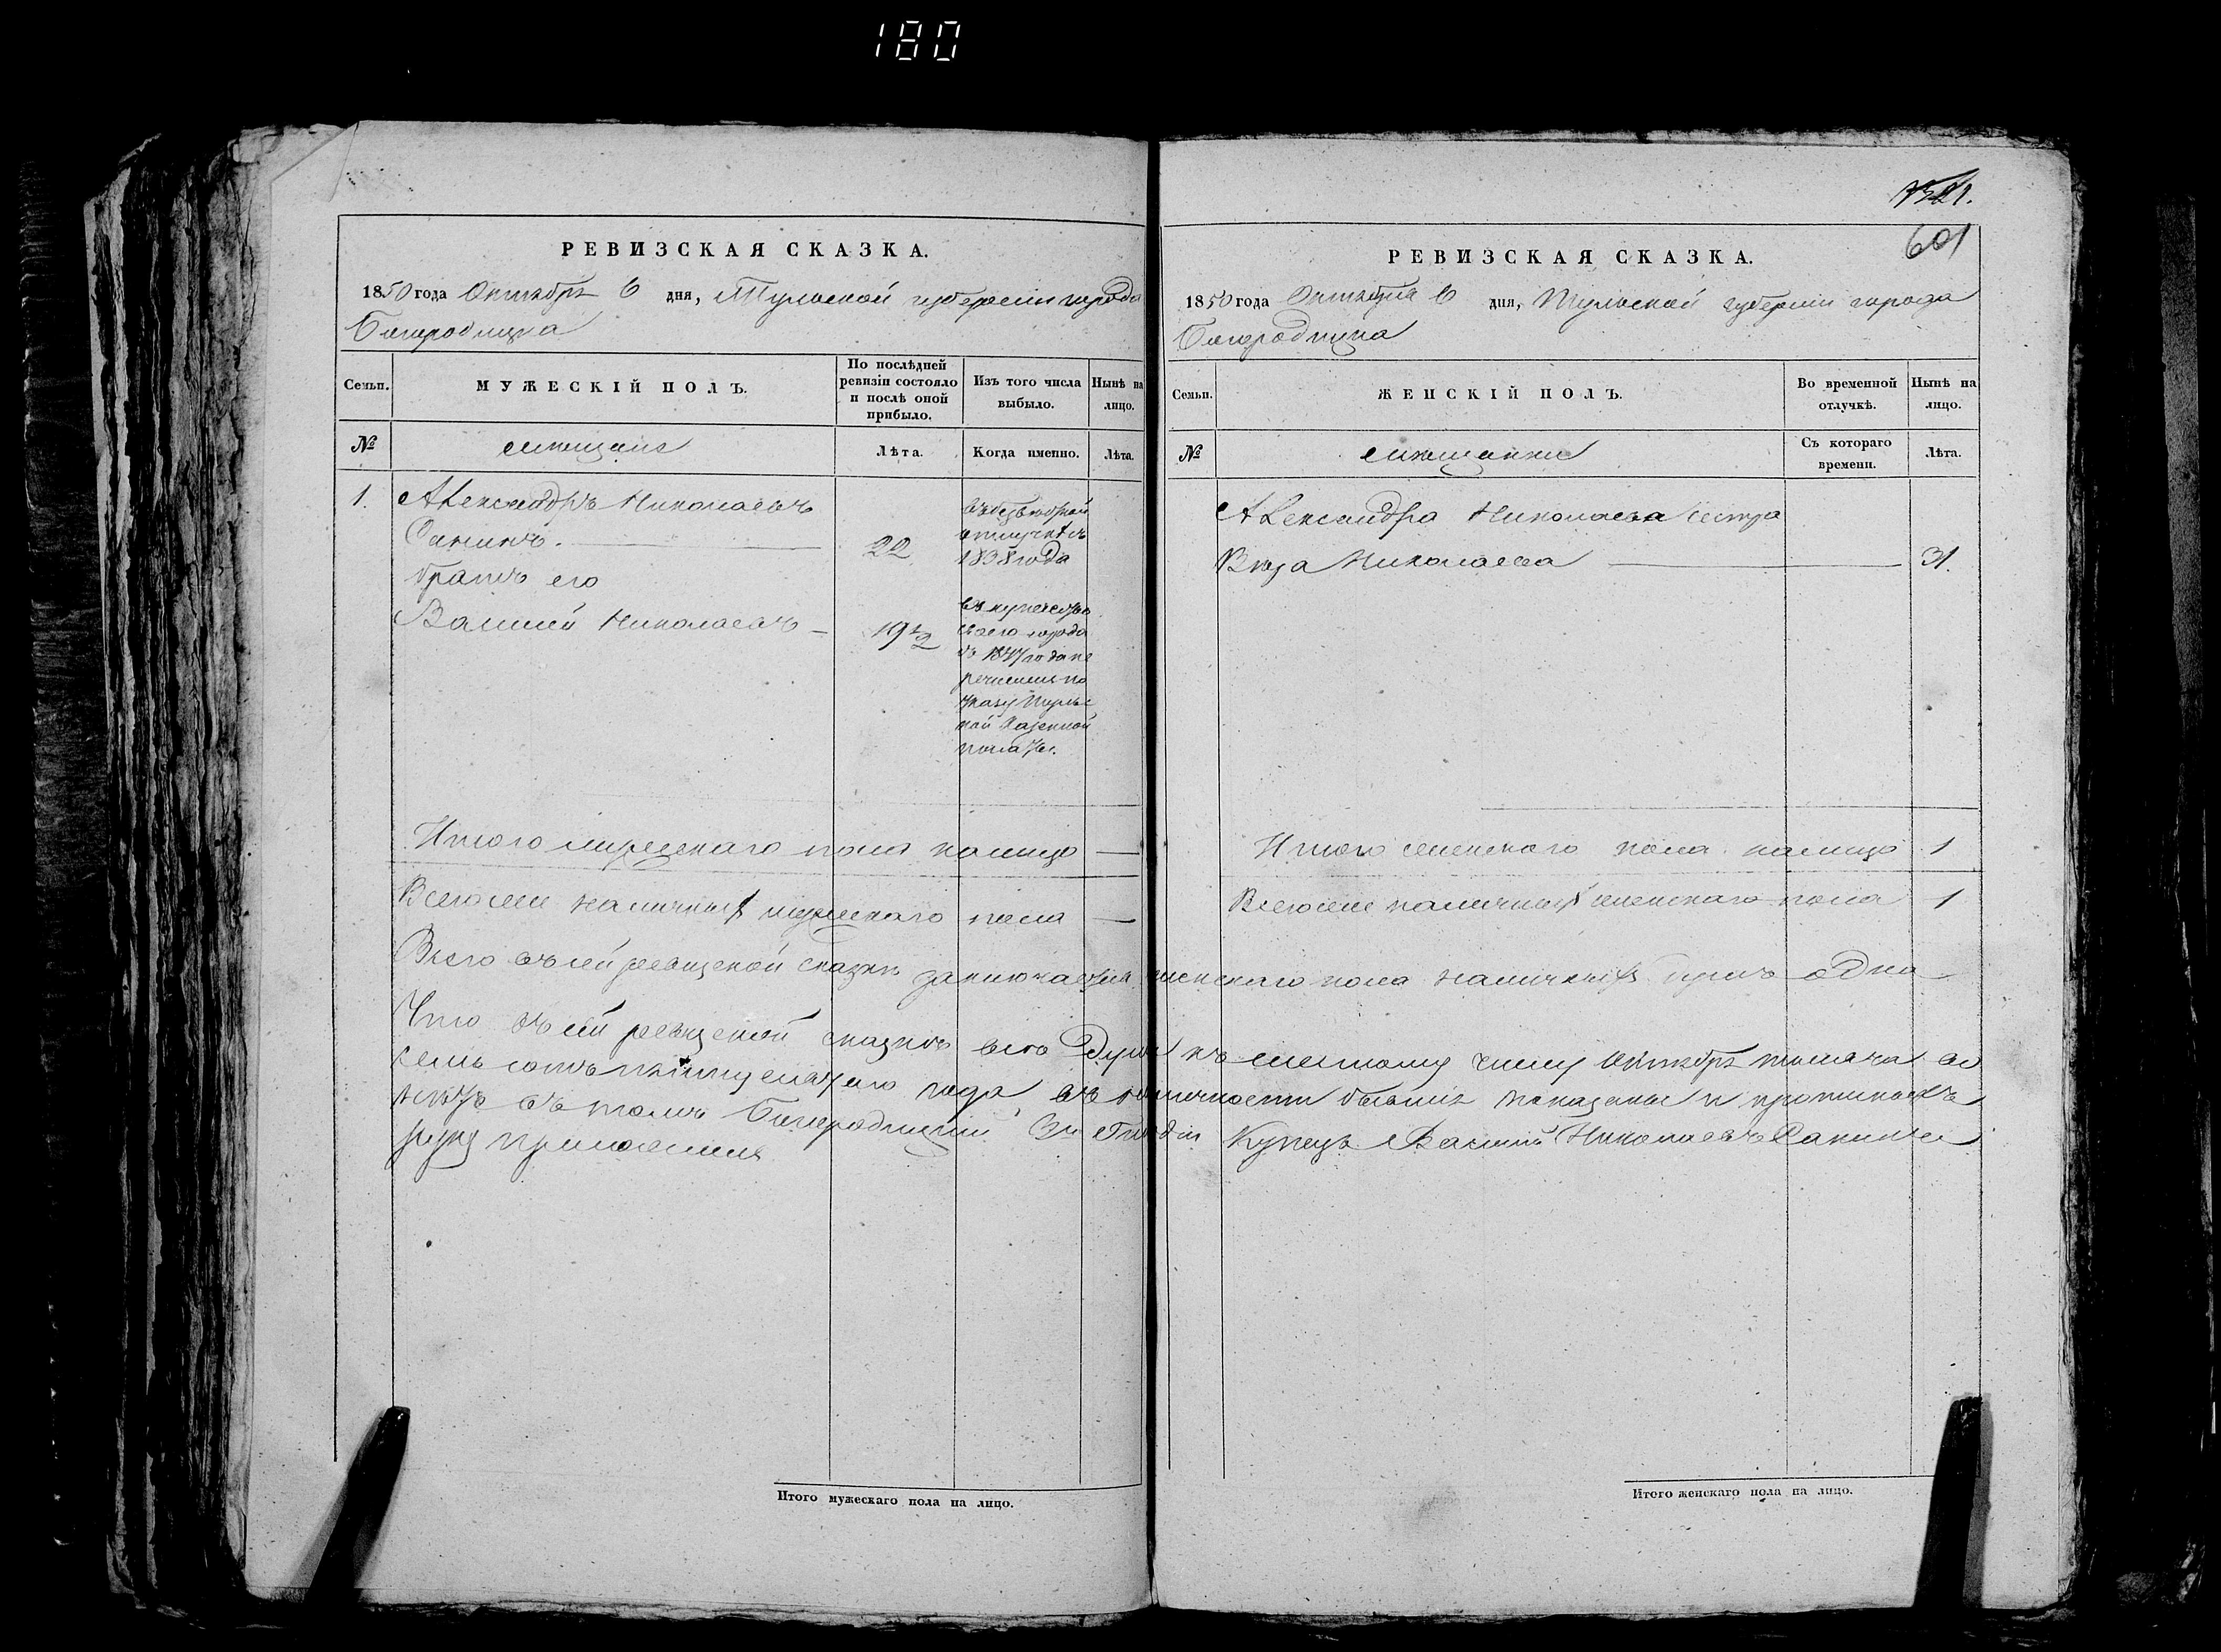 180
РЕВИЗСКАЯ СКАЗКА.
1850 года Октября 6 дня, Тульской губернiи города
Богородицка
Семьи.
МУЖЕСКІЙ ПОЛЪ.
По послѣдней ревизіи состояло и послѣ оной прибыло.
Изъ того числа выбыло.
Нынѣ на лицо.
№
мѣщане
Лѣта.
Когда именно.
Лѣта.
1.
Александръ Николаевъ
Санинъ.
22
въ безвѣстной
отлучкѣ съ
1838 года
братъ его
Василий Николаевъ
19 1/2
въ купечество
сего города
съ 1847 года пе
речисленъ по
указу Тульс
кой Казенной
палаты.
Итого мужескаго пола на лицо —
Всего же наличныхъ мужескаго пола —
РЕВИЗСКАЯ СКАЗКА.
601
1850 года Октября 6 дня, Тульской губернiи города
Богородицка
Семьи.
ЖЕНСКІЙ ПОЛЪ.
Во временной отлучкѣ.
Нынѣ на лицо.
№
мѣщанки
Съ котораго времени.
Лѣта.
Александра Николаева сестра
Николаева
31.
Итого женскаго пола налицо 1
Всего же наличныхъ женскаго пола 1
Всего въ сей ревизской сказкѣ заключается женскаго пола наличныхъ душъ одна
Что въ сей ревизской сказкѣ всѣ души къ шестому числу Октября тысяча во
семь сотъ пятидесятаго года, въ наличности бывшiе показаны и прописныхъ
нѣтъ въ томъ Богородицкий 3й Гильдiи Купецъ Василий Николаевъ Санинъ
руку приложилъ
Итого мужескаго пола на лицо.
Итого женскаго пола на лицо.